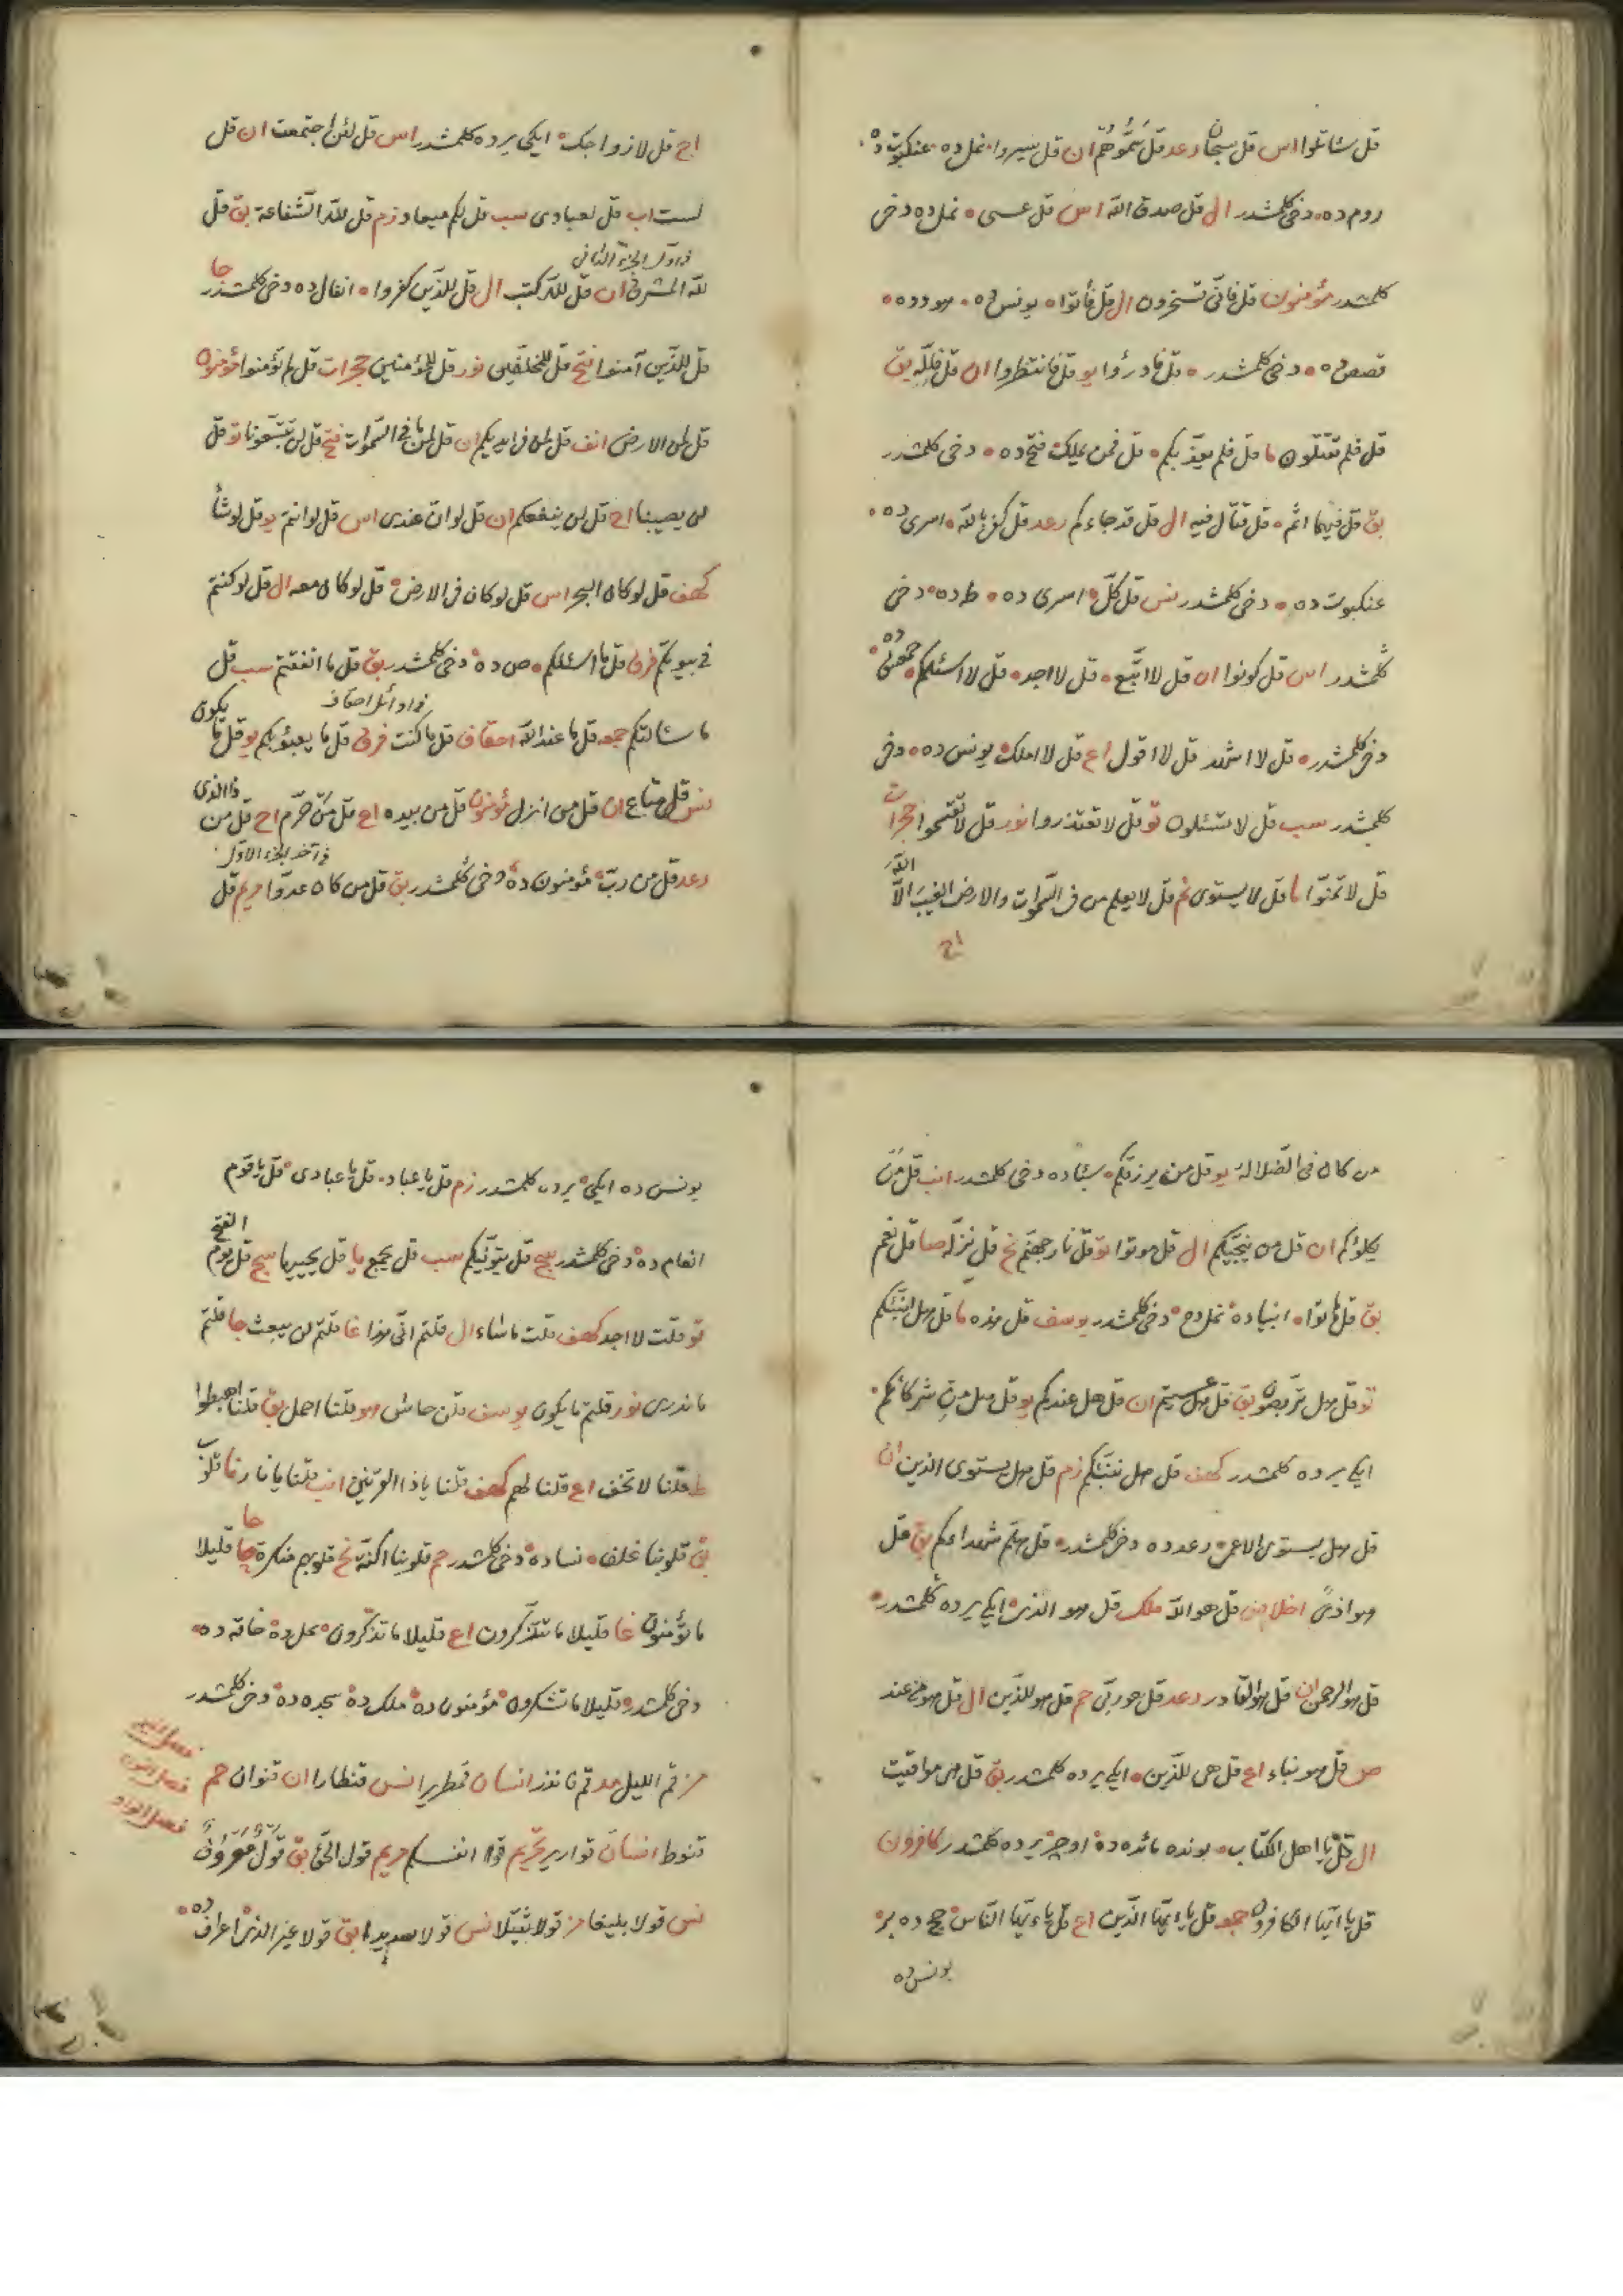 قل سئاتلوا اس قل سبحان رعد قل سَمُّوهُم ان قل سيروا نمل ده عنكبوت ده
روم ده دخى كلمشدر ال قل صدق الله اس قل عسى نمل ده دخى
كلمشدر مؤمنون قل فانّى تسحرون ال قل فأتوا يونس ده هود ده
قصص ده دخى كلمشدر قل فادرؤا يو قل فانتظروا ان قل فللّه بق
قل فلم تقتلون ما قل فلم يعذّبكم قل فمن يملك فتح ده دخى كلمشدر
بق قل فيهما اثم قل قتال فيه ال قل قد جاءكم رعد قل كفى بالله اسرى ده
عنكبوت ده دخى كلمشدر نس قل كلّ اسرى ده طه ده دخى
كلمشدر اس قل كونوا ان قل لا اتّبع قل لا اجد قل لا اسئلكم
دخى كلمشدر قل لا اشهد قل لا اقول اع قل لا املك يونس ده دخى
كلمشدر سب قل لا تسئلون تو قل لا تعتذروا نور قل لا تقسموا حجرات
قل لا تمنّوا ما قل لا يستوى نم قل لا يعلم من فى السّموات والارض الغيبَ الاّ الله
اح
اح قل لازواجك ايكى يرده كلمشدر اس قل لئن اجتمعت ان قل
لست اب قل لعبادى سب قل لكم ميعاد زم قل للّه الشّفاعة بق قل
فى اوّل الجزء الثانى
للّه المشرق ان قل للّه كتب ال قل للّذين كفروا انفال ده دخى كلمشدر جا
قل للّذين آمنوا فتح قل للمخلّفين نور قل للمؤمنين حجرات قل لم تؤمنوا مؤمنون
قل لمن الارض انف قل لمن فى ايديكم ان قل لمن ما فى السّموات فتح قل لن تتّبعونا تو قل
لن يصيبنا اح قل لن ينفعكم ان قل لو انّ عندى اس قل لو انتم يو قل لو شاء
كهف قل لو كان البحر اس قل لو كان فى الارض قل لو كان معه ال قل لو كنتم
فى بيوتكم فرق قل ما اسئلكم ص ده دخى كلمشدر بق قل ما انفقتم سب قل
فى اوائل احقاف
ما سئالتكم جمعه قل ما عند الله احقاف قل ما كنت فرق قل ما يعبؤ بكم يو قل ما يكون
نس قل متاع ان قل من انزل مؤمنون قل من بيده اع قل من حرّم اح قل من ذا الذى
فى آخر الجزء الاوّل
رعد قل من ربّ مؤمنون ده دخى كلمشدر بق قل من كان عدوّا مريم قل
من كان فى الضّلالة يو قل من يرزقكم سبا ده دخى كلمشدر انب قل مَن
يكلؤكم ان قل من ينجّيكم ال قل موتوا تو قل نار جهنّم نح قل نزّله صا قل نعم
بق قل هاتوا انبيا ده نمل ده دخى كلمشدر يوسف قل هذه ما قل هل انبّئكم
تو قل هل تربّصون بق قل هل عسيتم ان قل هل عندكم يو قل هل من شركائكم
ايكى يرده كلمشدر كهف قل هل ننبّئكم زم قل هل يستوى الذين ان
قل هل يستوى الاعمى رعد ده دخى كلمشدر قل هلمّ شهداءكم بق قل
هو اذىً اخلاص قل هو اللّه ملك قل هو الذى ايكى يرده كلمشدر
قل هو الرحمن ان قل هو القادر رعد قل هو ربّى حم قل هو للذّين ال قل هو من عند
ص قل هو نباء اع قل هى للّذين ايكى يرده كلمشدر بق قل هى مواقيت
ال قل يا اهل الكتاب بونده مائده ده اوچ يرده كلمشدر كافرون
قل يا ايّها الكافرون جمعه قل يا ايّها الّذين اع قل يا ايّها النّاس حج ده بر
يونس ده
يونس ده ايكى يرده كلمشدر زم قل يا عباد قل يا عبادى قل يا قوم
انعام ده دخى كلمشدر سج قل يتوفّيكم سب قل يجمع يا قل يحييها سج قل يوم الفتح
تو قلت لا اجد كهف قلت ما شاء ال قلتم انّى هذا غا قلتم لن يبعث جا قلتم
ما ندرى نور قلتم ما يكون يوسف قلن حاش هو قلنا احمل بق قلنا اهبطوا
ط قلنا لا تخف اع قلنا لهم كهف قلنا يا ذا القرنين انب قلنا يا نار نا قلوب
بق قلوبنا غلف نسا ده دخى كلمشدر حم قلوبنا اكنّة نح قلوبهم منكرة حا قليلا
ما تؤمنون غا قليلا ما تتذكّرون اع قليلا ما تذكّرون نمل ده حاقه ده
دخى كلمشدر قليلا ما تشكرون مؤمنون ده ملك ده سجده ده دخى كلمشدر
مز قم الليل مد قم فانذر انسان قمطريرا نس قنطارا ان قنوان حم
قنوط انسان قوارير تحريم قوا انفسكم مريم قول الحقّ بق قَوْلٌ مَعْرُوفٌ
نس قولا بليغا مز قولا ثقيلا نس قولا سديدا بق قولا غير الذى اعراف ده
فصل الميم
فصل النون
فصل الواو